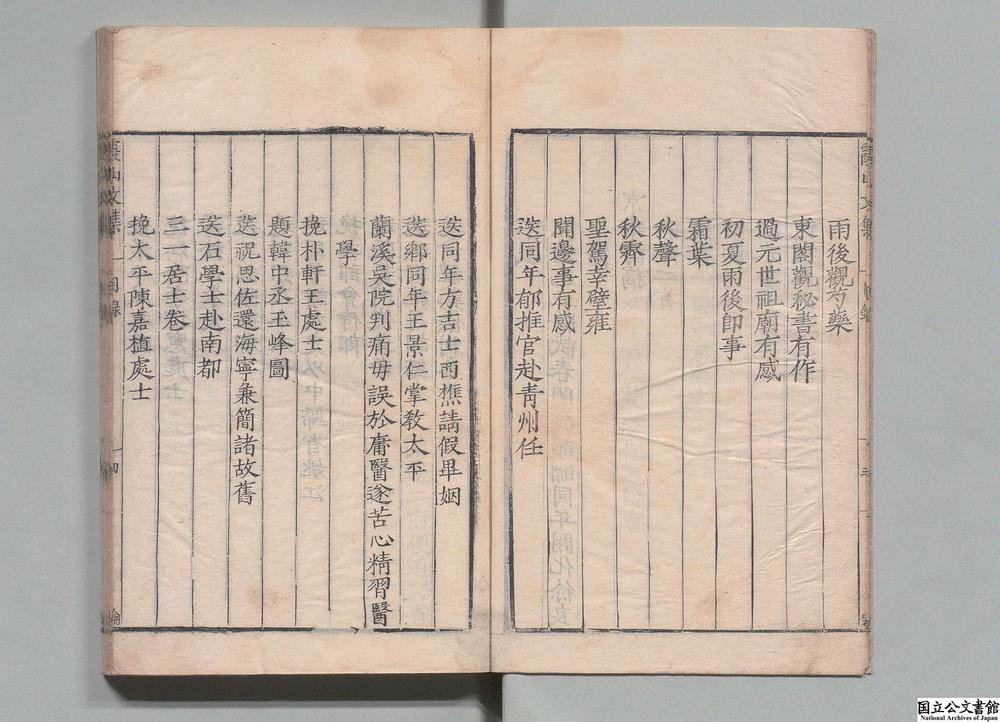 雨後觀芍藥
東閣觀秘書有作
過元世祖廟有感
初夏雨後即事
霜葉
秋聲
秋霽
聖駕幸璧雍
聞邊事有感
送同年郁推官赴青州任
送同年方吉士西樵請假畢姻
送鄉同年王景仁掌敎太平
蘭溪吳院判痛毋誤於庸醫遂苦心精習醫
學
挽朴軒王處士
題韓中丞玉峰圖
送祝思佐還海寧兼簡諸故舊
送石學士赴南都
三一居士卷
挽太平陳嘉植處士
山文集
目錄
四
国立公文書館
National Archives of Japan